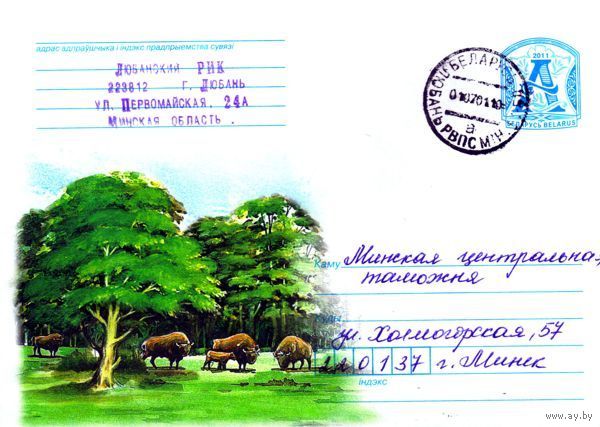 адрас адпраўшчыка і індэкс прадпрыемства сувязі
ЛЮБАНСКИЙ РИК
223812 Г. ЛЮБАНЬ
УЛ. ПЕРВОМАЙСКАЯ, 24А
МИНСКАЯ ОБЛАСТЬ.
2011
А
БЕЛАРУСЬ BELARUS
БЕЛАРУСЬ
ЛЮБАНЬ РВПС МІН.
а
Каму Минская центральна,
таможня
ул. Холмогорская, 57
220137 г. Минск
Індэкс
www.ay.by